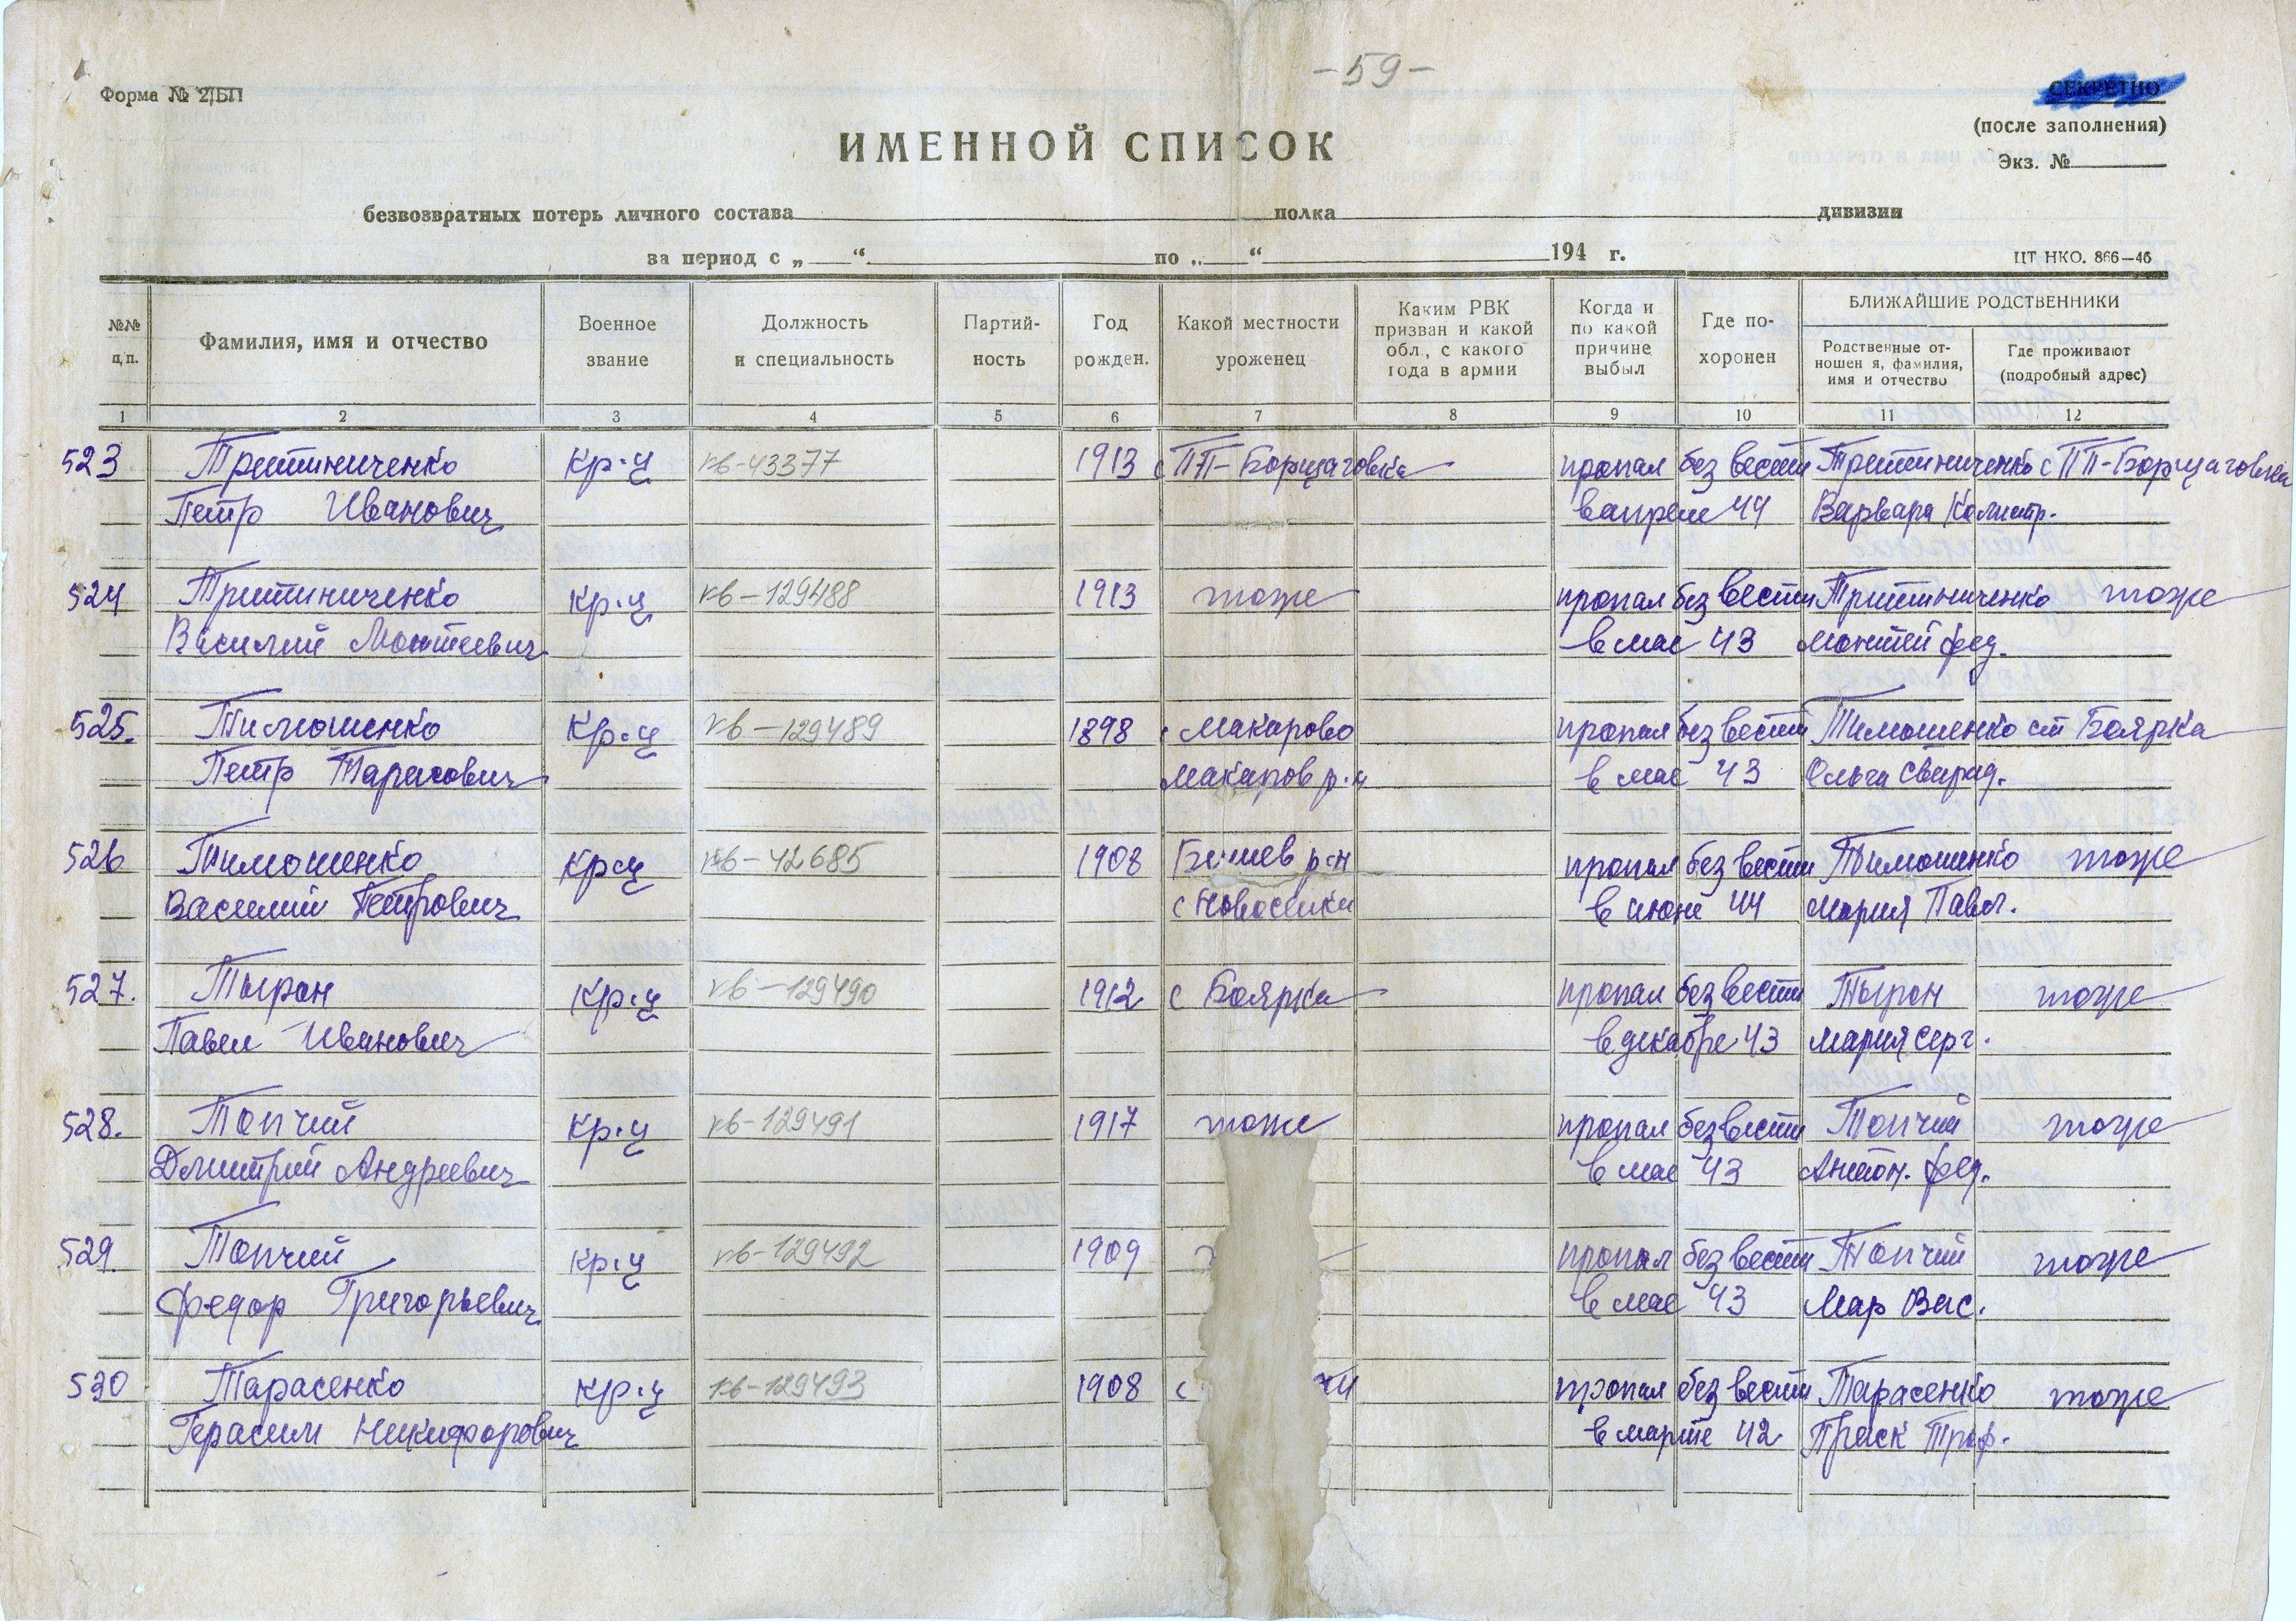 - 59 -
Форма № 2/БП
СЕКРЕТНО
(после заполнения)
Экз. №
ИМЕННОЙ СПИСОК
безвозвратных потерь личного состава полка дивизии
за период с „ “ по „ “ 194 г.
ЦТ НКО. 866—46
№№ п/п.
Фамилия, имя и отчество
Военное звание
Должность и специальность
Партий- ность
Год рожден.
Какой местности уроженец
Каким РВК призван и какой обл., с какого года в армии
Когда и по какой причине выбыл
Где по- хоронен
БЛИЖАЙШИЕ РОДСТВЕННИКИ
Родственные от- ношен я, фамилия, имя и отчество
Где проживают (подробный адрес)
1 2 3 4 5 6 7 8 9 10 11 12
523 Третиниченко кр-ц кв-43377 1913 с ПП-Борщаговка пропал без вести Третиниченко с ПП-Борщаговка
Петр Иванович в апреле 44 Варвара Калистр.
524 Третиниченко кр-ц кв-129488 1913 тоже пропал без вести Третиниченко тоже
Василий в мае 43 фед.
525. Тимошенко кр-ц кв-129489 1898 с Макарово пропал без вести Тимошенко ст Боярка
Петр Тарасович Макаров р-н в мае 43 Ольга Свирид.
526 Тимошенко кр-ц кв-42685 1908 Бишев р-н пропал без вести Тимошенко тоже
Василий Петрович с Новоселки в июне 44 Мария Павл.
527. Тыран кр-ц кв-129490 1912 с Боярка пропал без вести Тыран тоже
Павел Иванович в декабре 43 Мария Серг.
528. Топчий кр-ц кв-129491 1917 тоже пропал без вести Топчий тоже
Дмитрий Андреевич в мае 43 Антон. фед.
529. Топчий кр-ц кв-129492 1909 пропал без вести Топчий тоже
Федор Григорьевич в мае 43 Мар Вас.
530 Тарасенко кр-ц кв-129493 1908 с ки пропал без вести Тарасенко тоже
Герасим Никифорович в марте 42 Праск Троф.